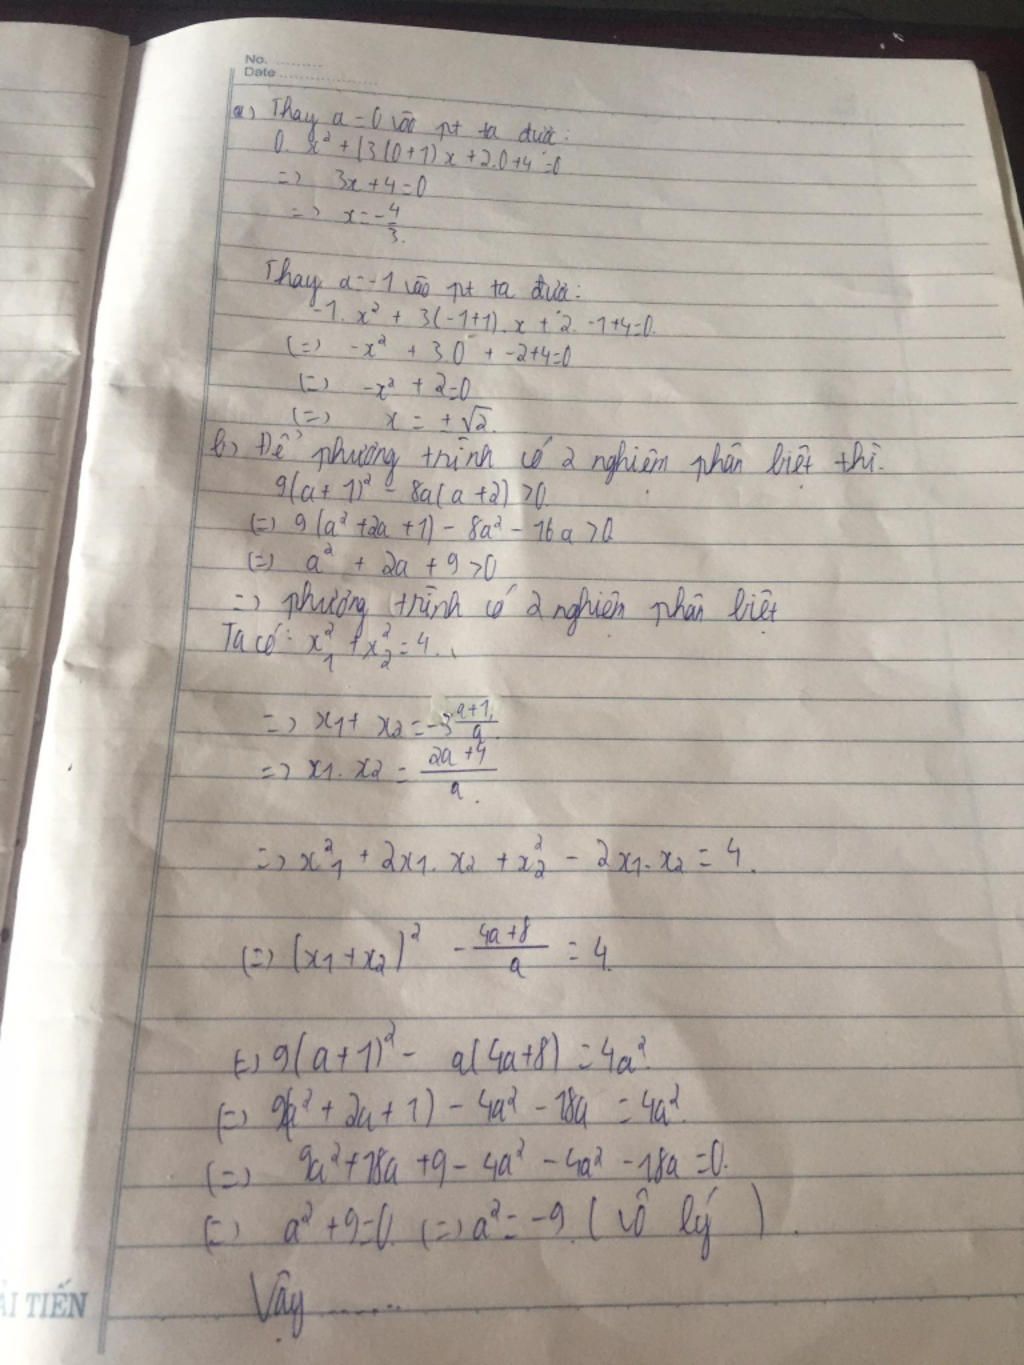 No. ............
Date ........................
a) Thay a = 0 vào pt ta được:
0. x² + (3(0+1)x + 2.0+4 = 0
=> 3x+4=0
=> x = -4/3.
Thay a = -1 vào pt ta được:
-1. x² + 3(-1+1).x + 2. -1+4=0.
(=) -x² + 3.0 + -2+4=0
(=) -x² + 2=0
(=) x = ±√2.
b) Để phương trình có 2 nghiệm phân biệt thì.
9(a+1)² - 8a(a+2) >0.
(=) 9(a² +2a +1) - 8a² - 16a >0
(=) a² + 2a + 9 >0
=> phương trình có 2 nghiệm phân biệt
Ta có: x₁² + x₂² = 4.
=> x₁ + x₂ = -3 (a+1)/a.
=> x₁. x₂ = (2a+4)/a.
=> x₁² + 2x₁. x₂ + x₂² - 2x₁. x₂ = 4.
(=) (x₁ + x₂)² - (4a+8)/a = 4.
(=) 9(a+1)² - a(4a+8) = 4a²
(=) 9(a² + 2a + 1) - 4a² - 18a = 4a².
(=) 9a² + 18a + 9 - 4a² - 4a² - 18a = 0.
(=) a² + 9=0. (=) a² = -9. (vô lý).
Vậy .......
ẢI TIẾN